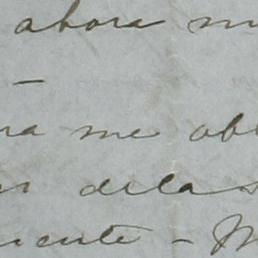 ahora m
–
na me ob
delas
iente – M